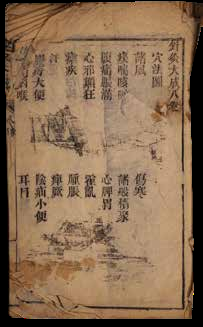 針灸大成八卷
穴法圖
諸風 傷寒
痰喘咳嗽 諸般積聚
腹痛脹滿 心脾胃
心邪癲狂 霍亂
瘧疾 腫脹
汗 痺厥
腸痔大便 陰疝小便
咽喉 耳目